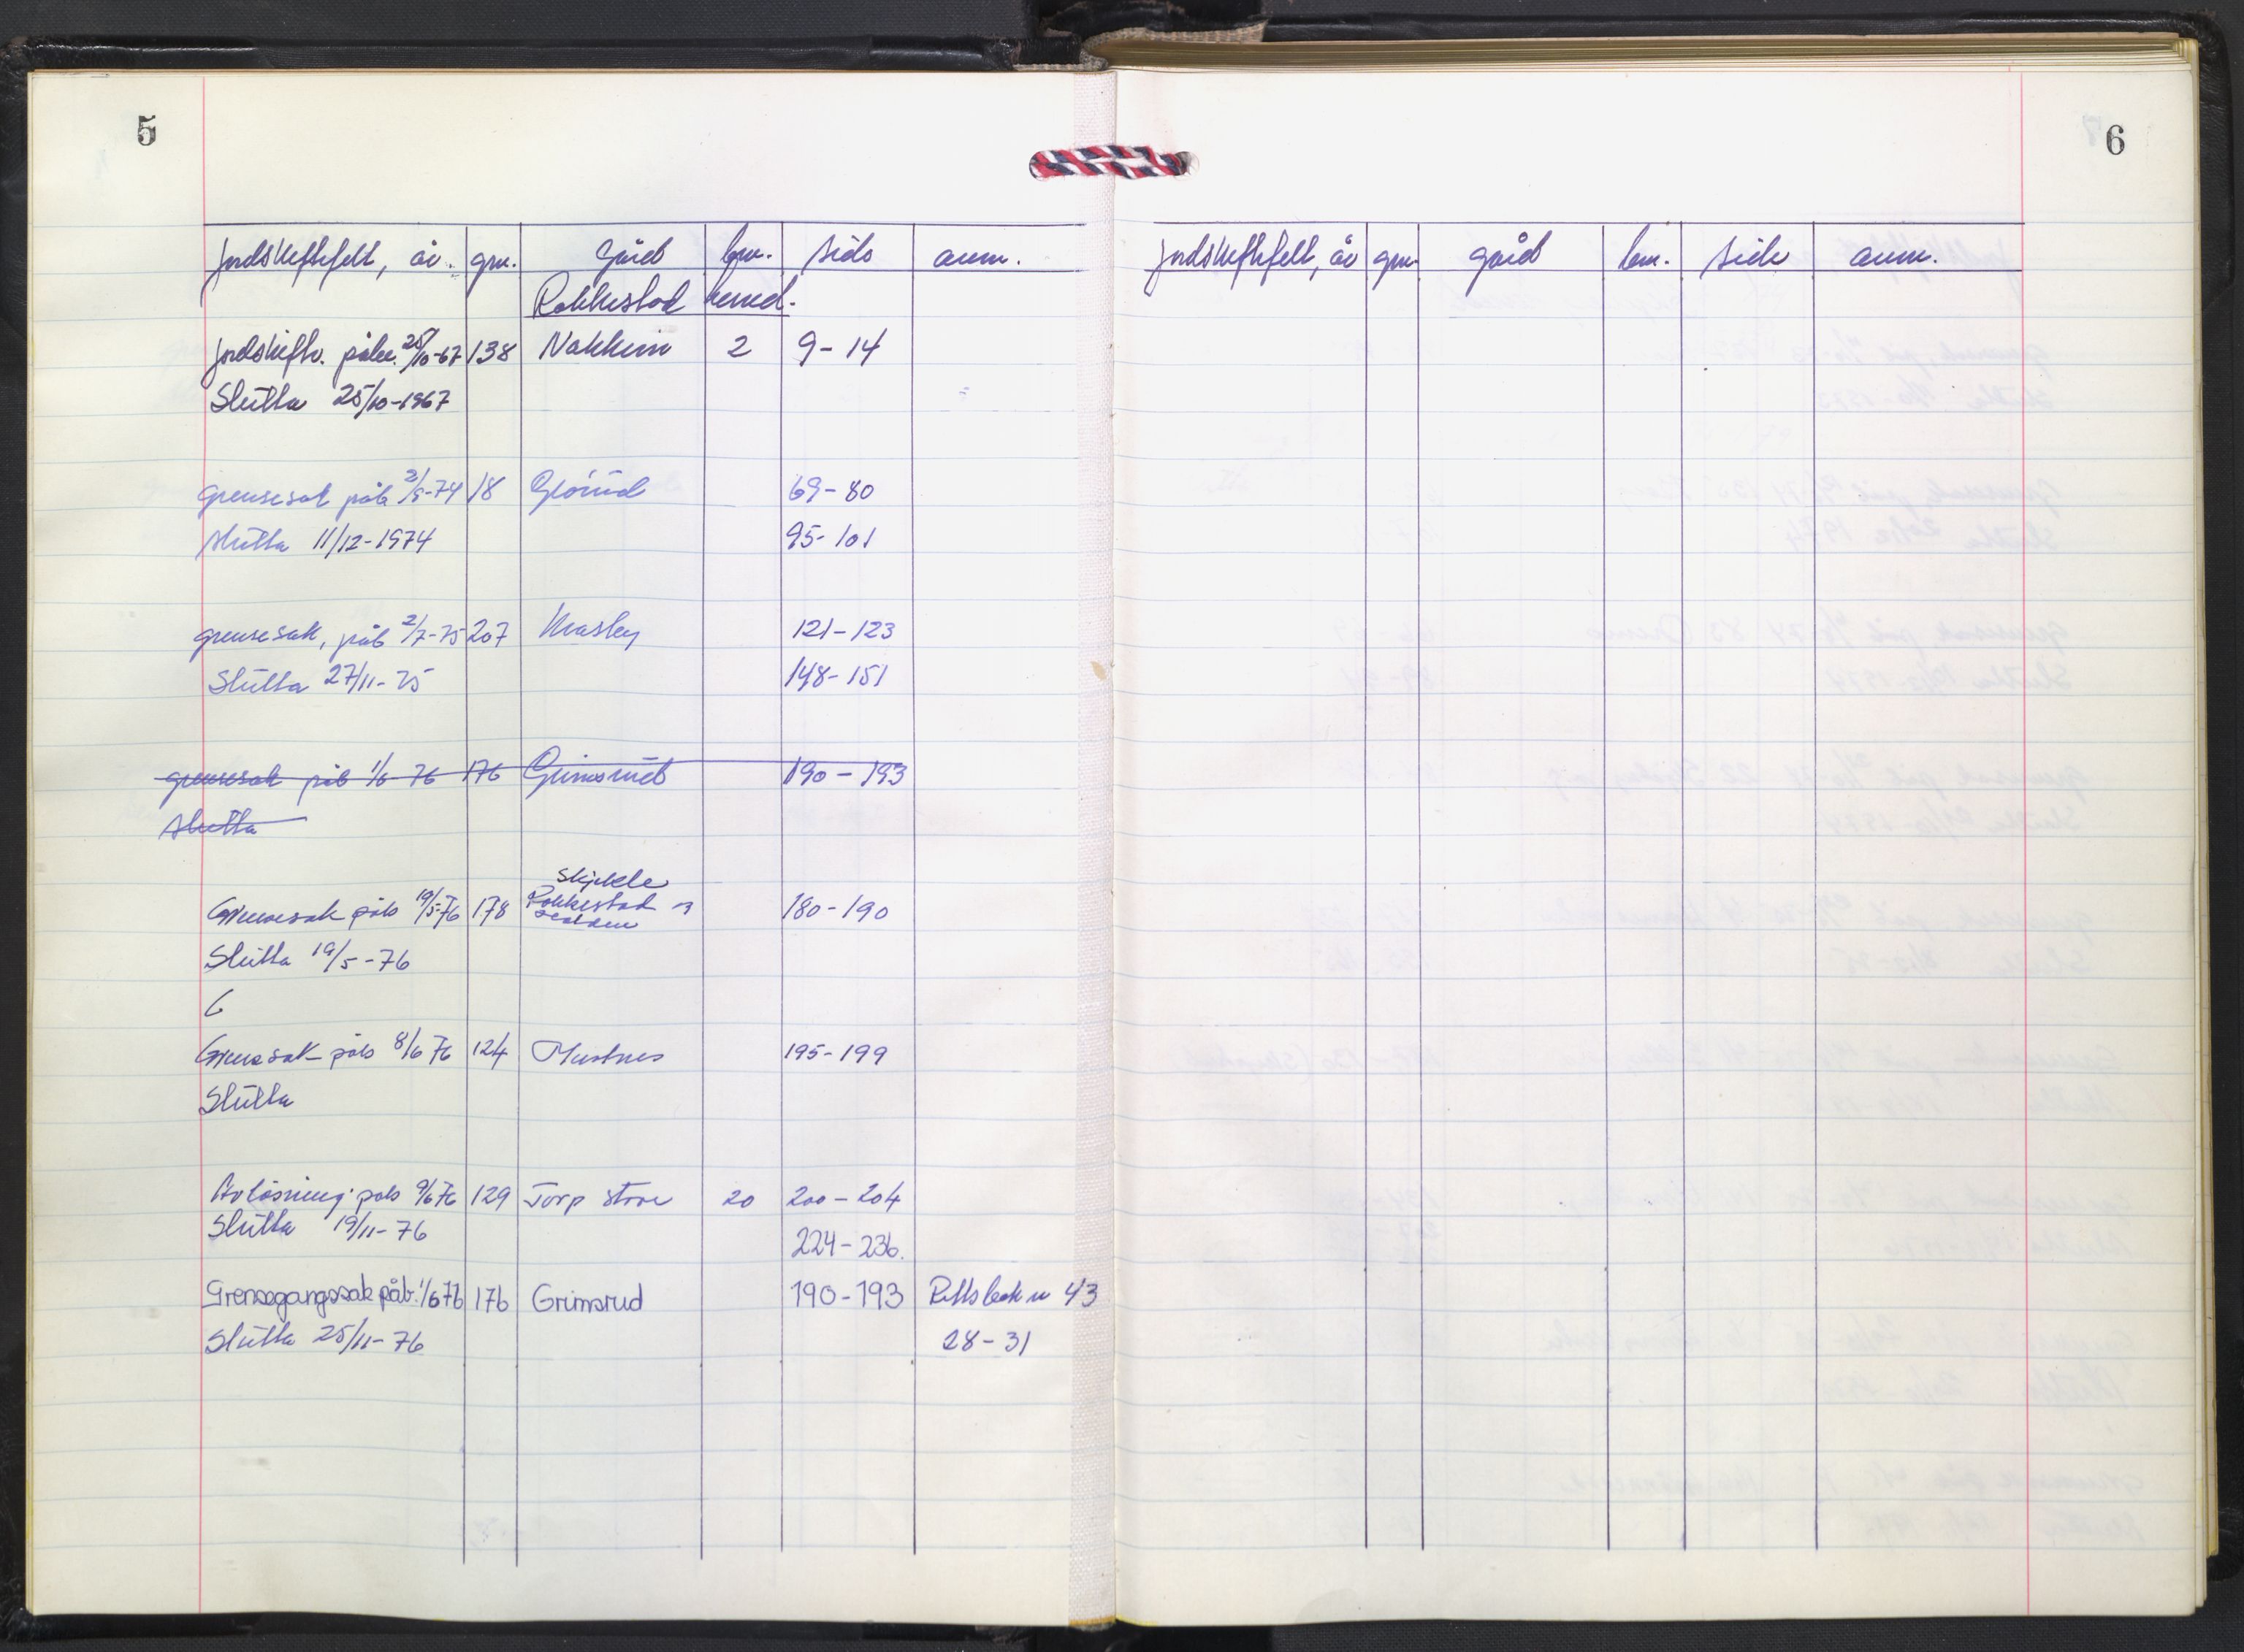 5
Jordskiftefelt, år. gnr. gård bnr. side anm.
Rakkestad herred.
Jordskiftv. påbe. 25/10-67 138 Nakkim 2 9-14
Slutta 25/10-1967
grensesak påb 2/8-74 18 Glörud 69-80
slutta 11/12-1974 95-101
grensesak, påb 2/7-75 207 Krasby 121-123
Slutta 27/11-75 148-151
grensesak påb 1/6 76 176 Grimsrud 190-193
slutta
Skjekle
Grensesak påb 19/5-76 178 Rakkestad 180-190
Slutta 19/5-76
G
Grensesak påb 8/6 76 124 Mustnes 195-199
Slutta
Avløsning påb 9/6 76 129 Torp store 20 200-204
Slutta 19/11-76 224-236.
Grensegangssak påb. 1/6 76 176 Grimsrud 190-193 Rettsbok nr 43
Slutta 25/11-76 28-31
6
Jordskiftefelt, år gnr. gård bnr. side anm.